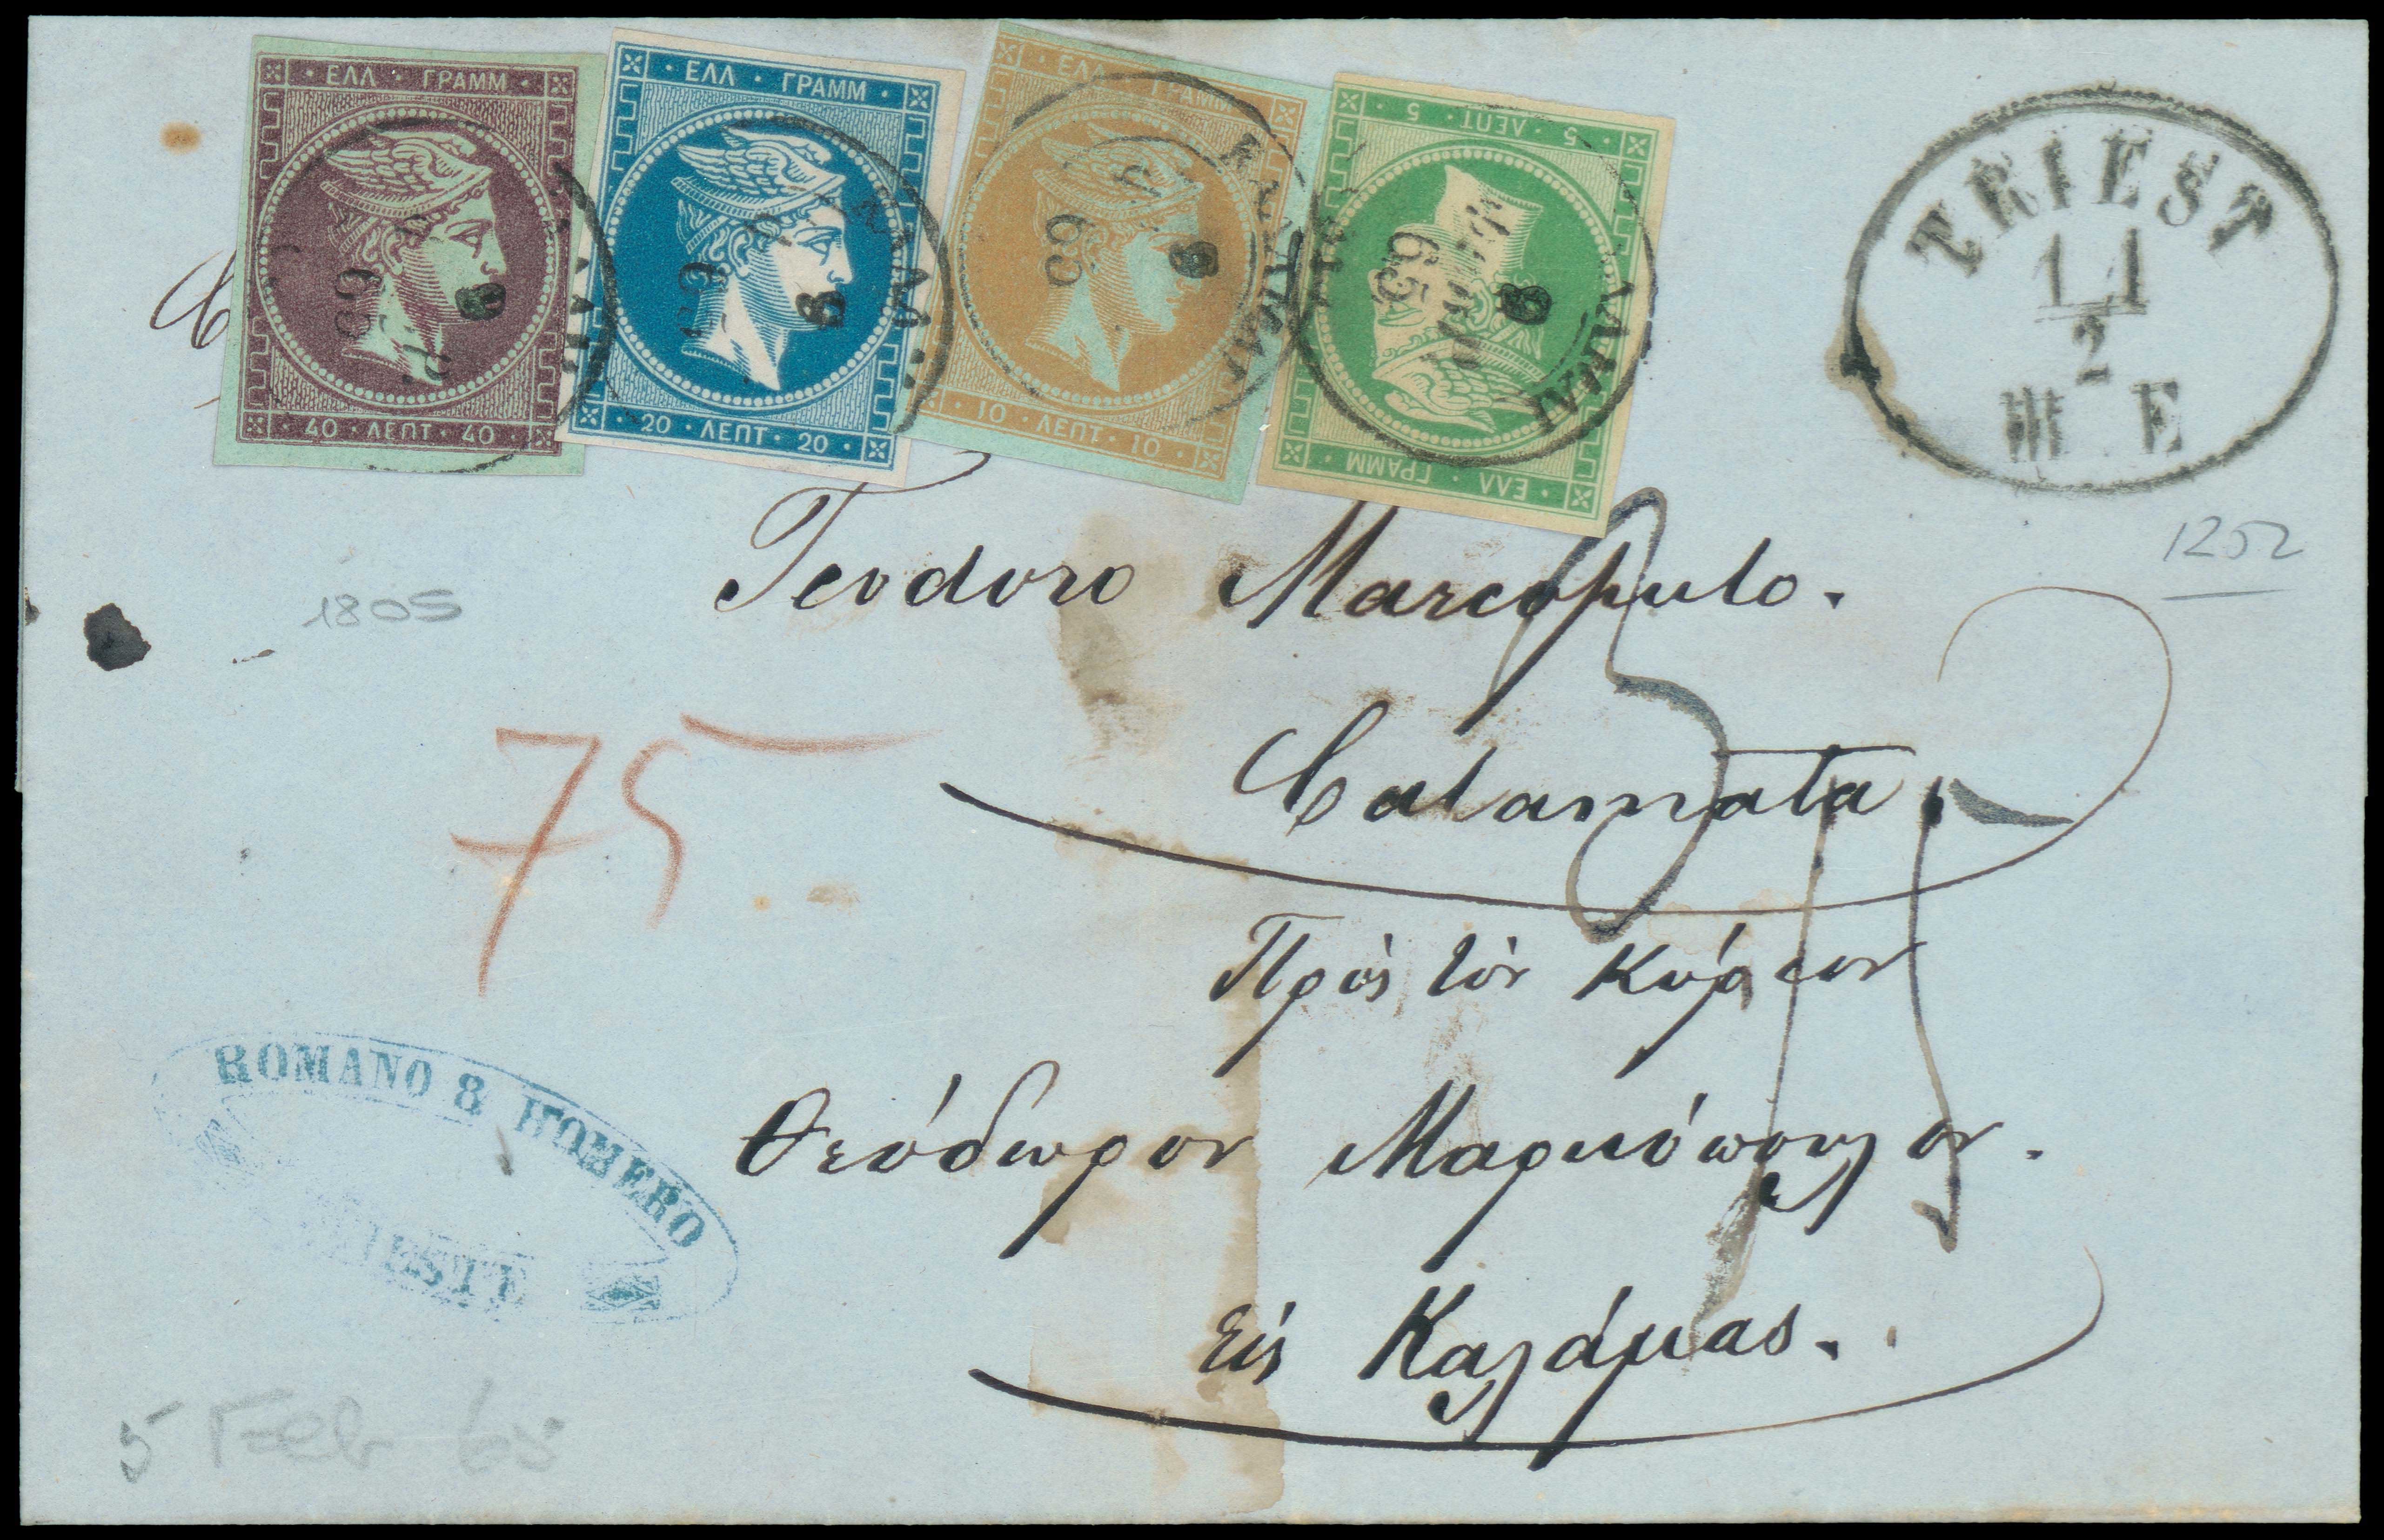 ΕΛΛ · ΓΡΑΜΜ
40 · ΛΕΠΤ · 40
ΕΛΛ · ΓΡΑΜΜ
20 · ΛΕΠΤ · 20
ΕΛΛ · ΓΡΑΜΜ
10 · ΛΕΠΤ · 10
5 · ΛΕΠΤ · 5
ΕΛΛ · ΓΡΑΜΜ
65
65
65
ΚΑΛΑΜΑΙ
65
ΚΑΛΑΜΑΙ
TRIEST
11
2
E
1252
1805
Teodoro Marcopulo.
Calamata
75
Πρὸς τὸν Κύριον
Θεόδωρον Μαρκόπουλον.
εἰς Καλάμας.
ROMANO & HOMERO
TRIESTE
5 Feb 65